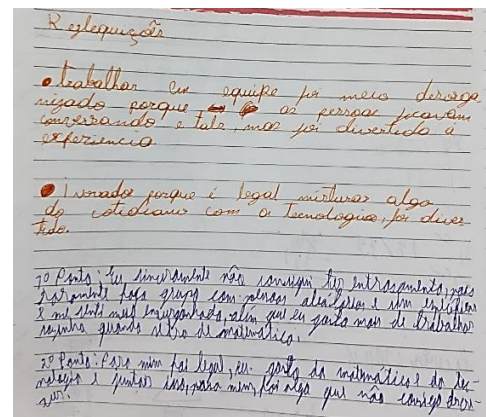 Reflequições
• trabalhar em equipe foi meio desorga
nizado porque as pessoas ficavam
conversando e tals, mas foi divertido a
experiencia
• Inovador porque é legal misturar algo
do cotidiano com a tecnologia, foi diver
tido.
1º Ponto: Eu sinceramente não consegui ter entrosamento, pois
raramente faço grupo com pessoas aleatórias e sem
e me senti meio envergonhada, além que eu gosto mais de trabalhar
sozinha quando se trata de matemática.
2º Ponto: Para mim foi legal, eu gosto da matemática e da tec-
nologia e juntar isso, para mim, foi algo que não consigo